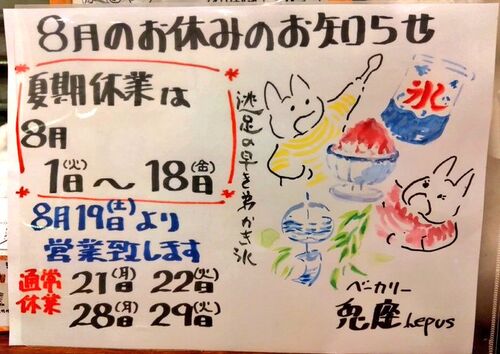 8月のお休みのお知らせ
夏期休業は
8月
1日(火)〜18日(金)
8月19日(土)より
営業致します
通常休業
21日(月) 22日(火)
28日(月) 29日(火)
氷
逃足の早き弟かき氷
ベーカリー
兎座 Lepus